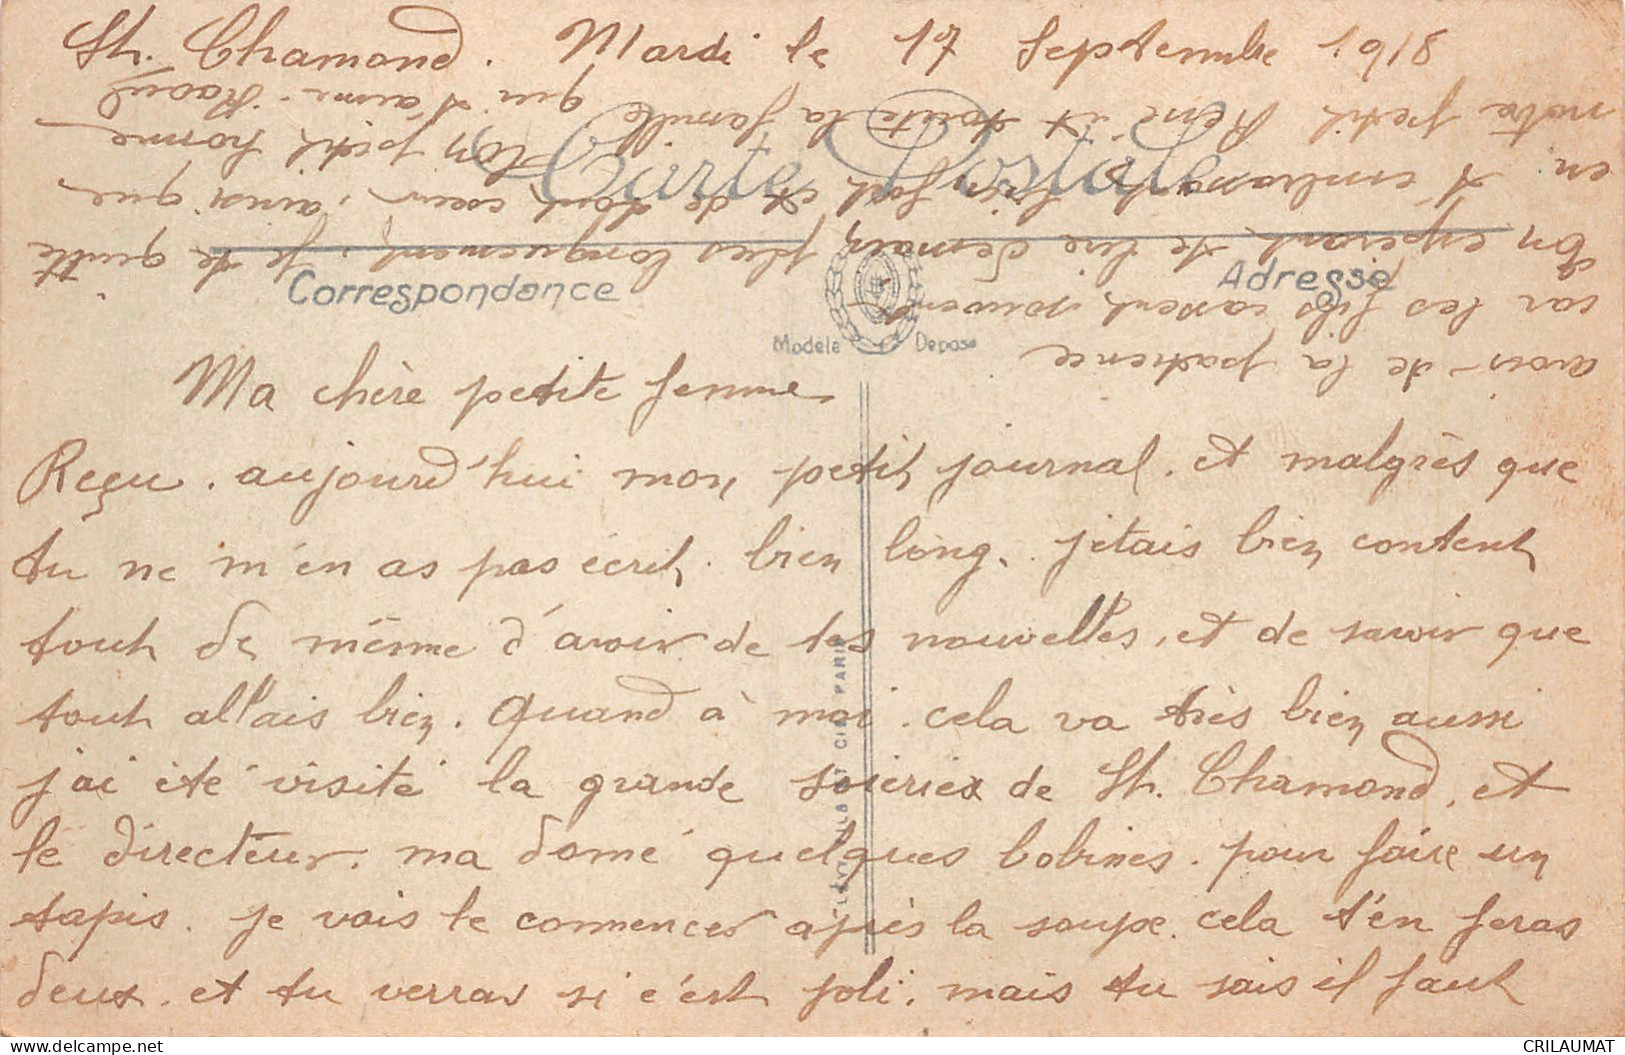 St. Chamond. Mardi le 17 Septembre 1918
Carte Postale
Correspondance
Adresse
Modèle Déposé
Ma chère petite femme
Reçu. aujourd'hui mon petit journal. et malgrès que
tu ne m'en as pas écrit. bien long. j'etais bien content
tout de même d'avoir de tes nouvelles, et de savoir que
tout allais bien. Quand à moi. cela va très bien aussi
j'ai été visité la grande soieries de St. Chamond, et
le directeur. ma domé quelques bobines. pour faire un
tapis. je vais le commencer après la soupe. cela t'en feras
deux. et tu verras si c'est joli. mais tu sais il faut
avoir de la patience
car les fils cassent souvent
En esperant te lire demain plus longuement. Je te quitte
en t'embrassant bien fort et de tout cœur, ainsi que
notre petit René et toute la famille Ton petit homme
qui t'aime. Raoul
ET CIE PARIS
CRILAUMAT